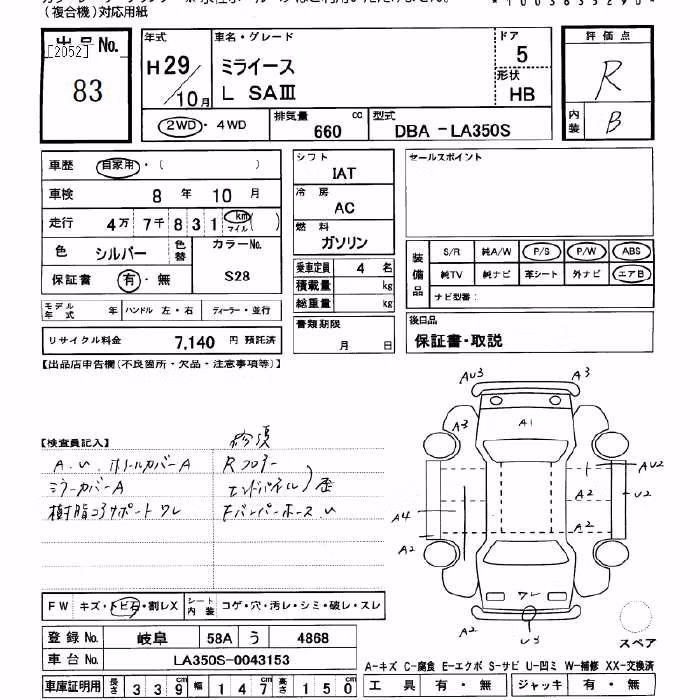 (複合機)対応用紙
*1003635290*
出品No.
[2052]
83
年式
H29/10月
車名・グレード
ミライース
L SAⅢ
ドア
5
形状
HB
2WD・4WD
排気量 660 cc
型式 DBA-LA350S
評価点
R
内装
B
車歴 自家用・( )
車検 8年 10月
走行 4万 7千 8 3 1 km マイル ( )
色 シルバー 色替 カラーNo.
保証書 有・無 S28
モデル年式 年 ハンドル 左・右 ディーラー・並行
リサイクル料金 7,140 円 預託済
シフト
IAT
冷房
AC
燃料
ガソリン
乗車定員 4 名
積載量 kg
総重量 kg
書類期限
月 日
セールスポイント
装備品
S/R 純A/W P/S P/W ABS
純TV 純ナビ 革シート 外ナビ エアB
ナビ型番:
後日品
保証書・取説
【出品店申告欄(不良箇所・欠品・注意事項等)】
【検査員記入】
修復
A.U.ホイールカバーA Rフロアー
ミラーカバーA エンドパネル)歪
樹脂コアサポートワレ FバンパーホースU
AU3 A3
A3 A1
AU2
A2 U2
A4 A2
A2
ワレ
A2 U3
スペア
FW キズ・トビ石・割レX シート内装 コゲ・穴・汚レ・シミ・破レ・スレ
登録No. 岐阜 58A う 4868
車台No. LA350S-0043153
車庫証明用 長さ 339 幅 147 高さ 150
A-キズ C-腐食 E-エクボ S-サビ U-凹ミ W-補修 XX-交換済
工具 有・無 ジャッキ 有・無